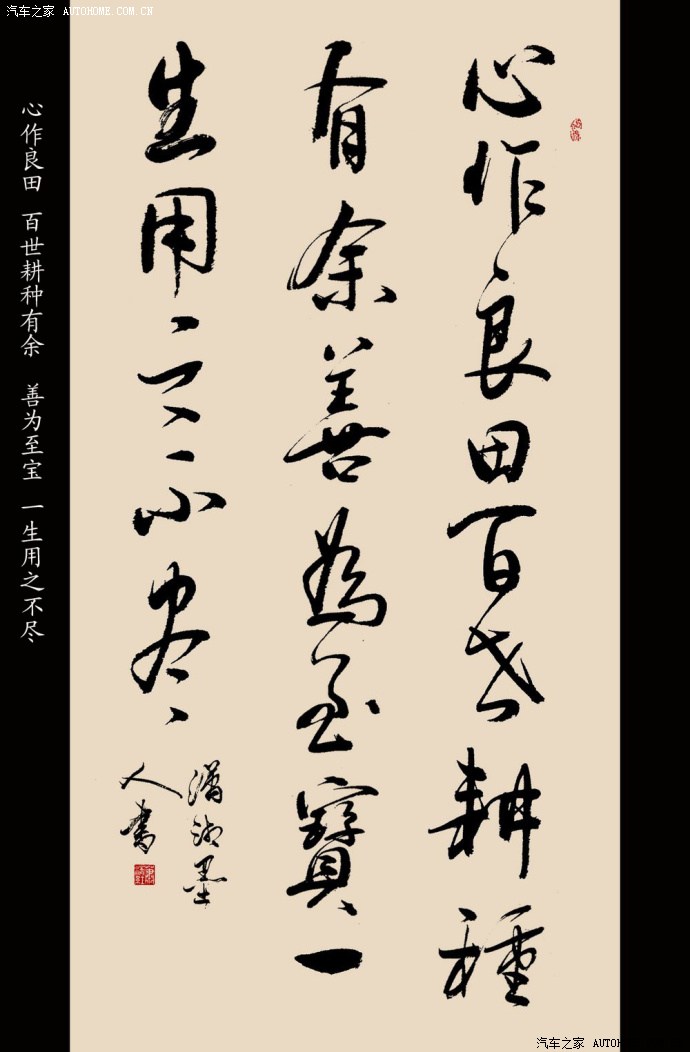 汽车之家 AUTOHOME.COM.CN
心作良田百世耕種
有余善為至寶一
生用之不尽
潇湘墨
人書
心作良田 百世耕种有余 善为至宝 一生用之不尽
汽车之家 AUTOHOME.COM.CN